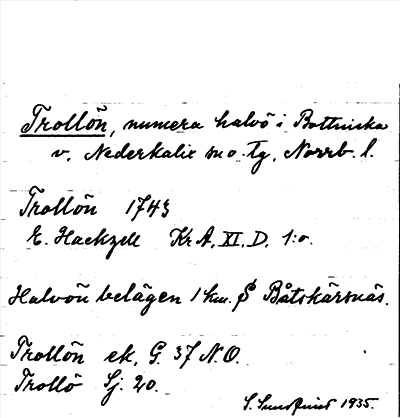 Trollön, numera halvö i Bottniska
v. Nederkalix sn o. tg, Norrb. l.
Trollön 1743
E. Hackzell KrA, XI, D, 1:o.
Halvön belägen 1 km. S Båtskärsnäs.
Trollön ek. G. 37 N.O.
Trollö Sj. 20.
S. Sundqvist 1935.